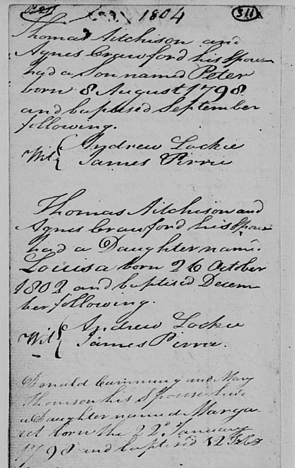 1804 311
Thomas Aitchison and
Agnes Crawford his Spouse
had a Son named Peter
born 8 August 1798
and baptised September
following.
Wit { Andrew Lockie
James Pirrie
Thomas Aitchison and
Agnes Crawford his Spou
had a Daughter nam
Louisa born 26 October
1802 and baptised Decem
ber following.
Wit { Andrew Lockie
James Perrie.
Donald Cumming and Mary
Thomson his Spouse had
a Daughter named Marga
ret born the 22d January
1798 and baptised 12 Feb